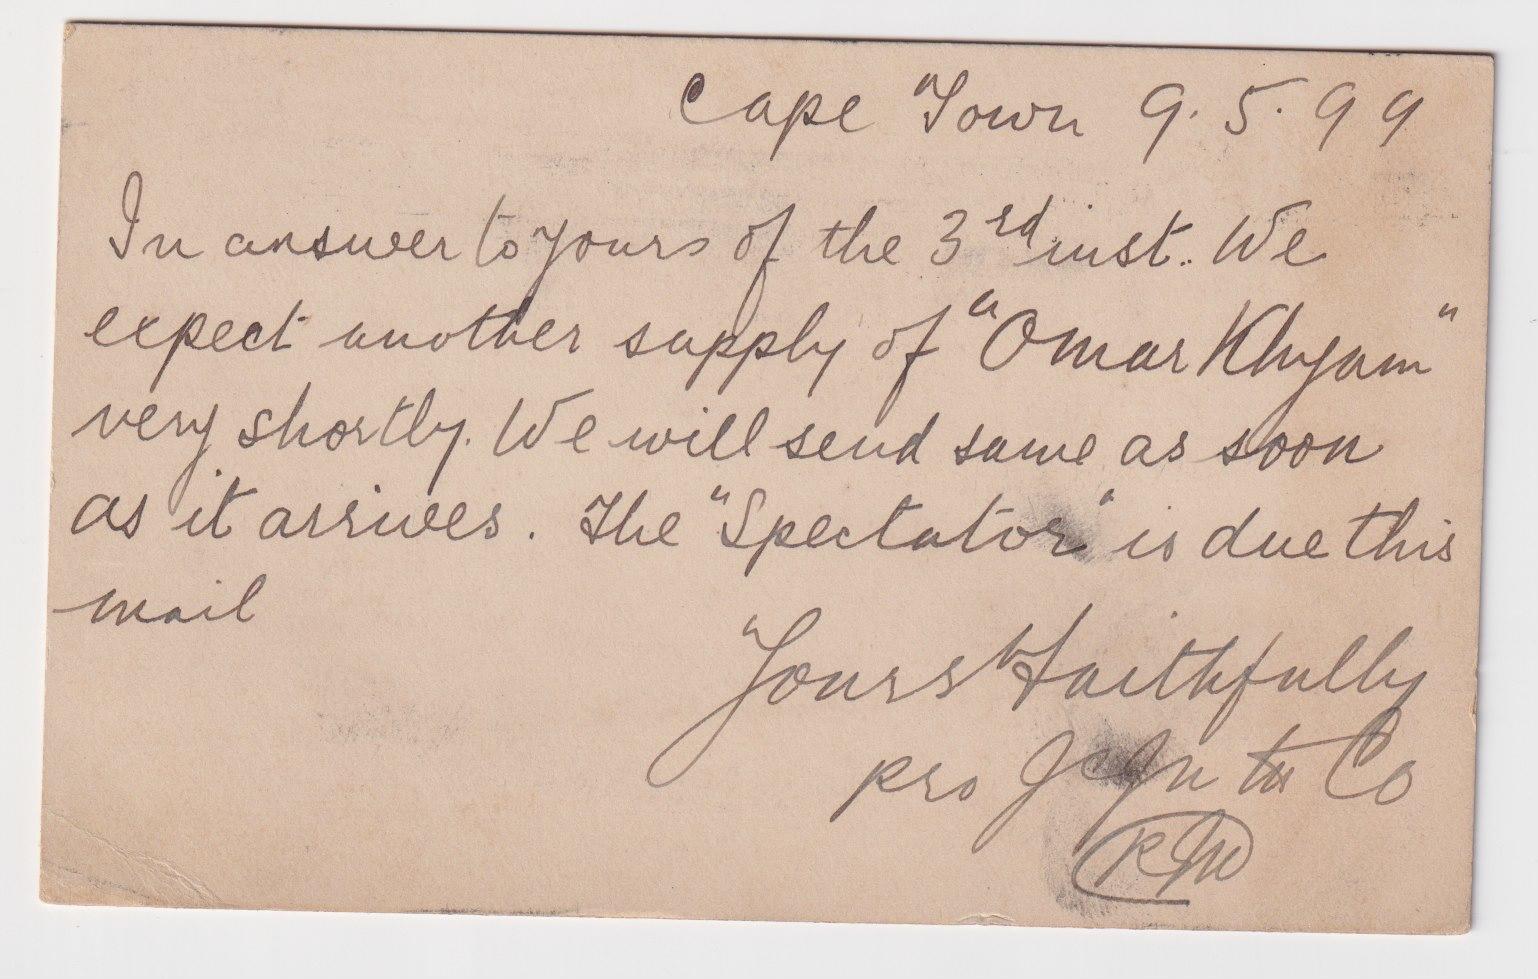 Cape Town 9.5.99
In answer to yours of the 3rd inst. We
expect another supply of "Omar Khyam"
very shortly. We will send same as soon
as it arrives. The "Spectator" is due this
mail
Yours Faithfully
pro Co